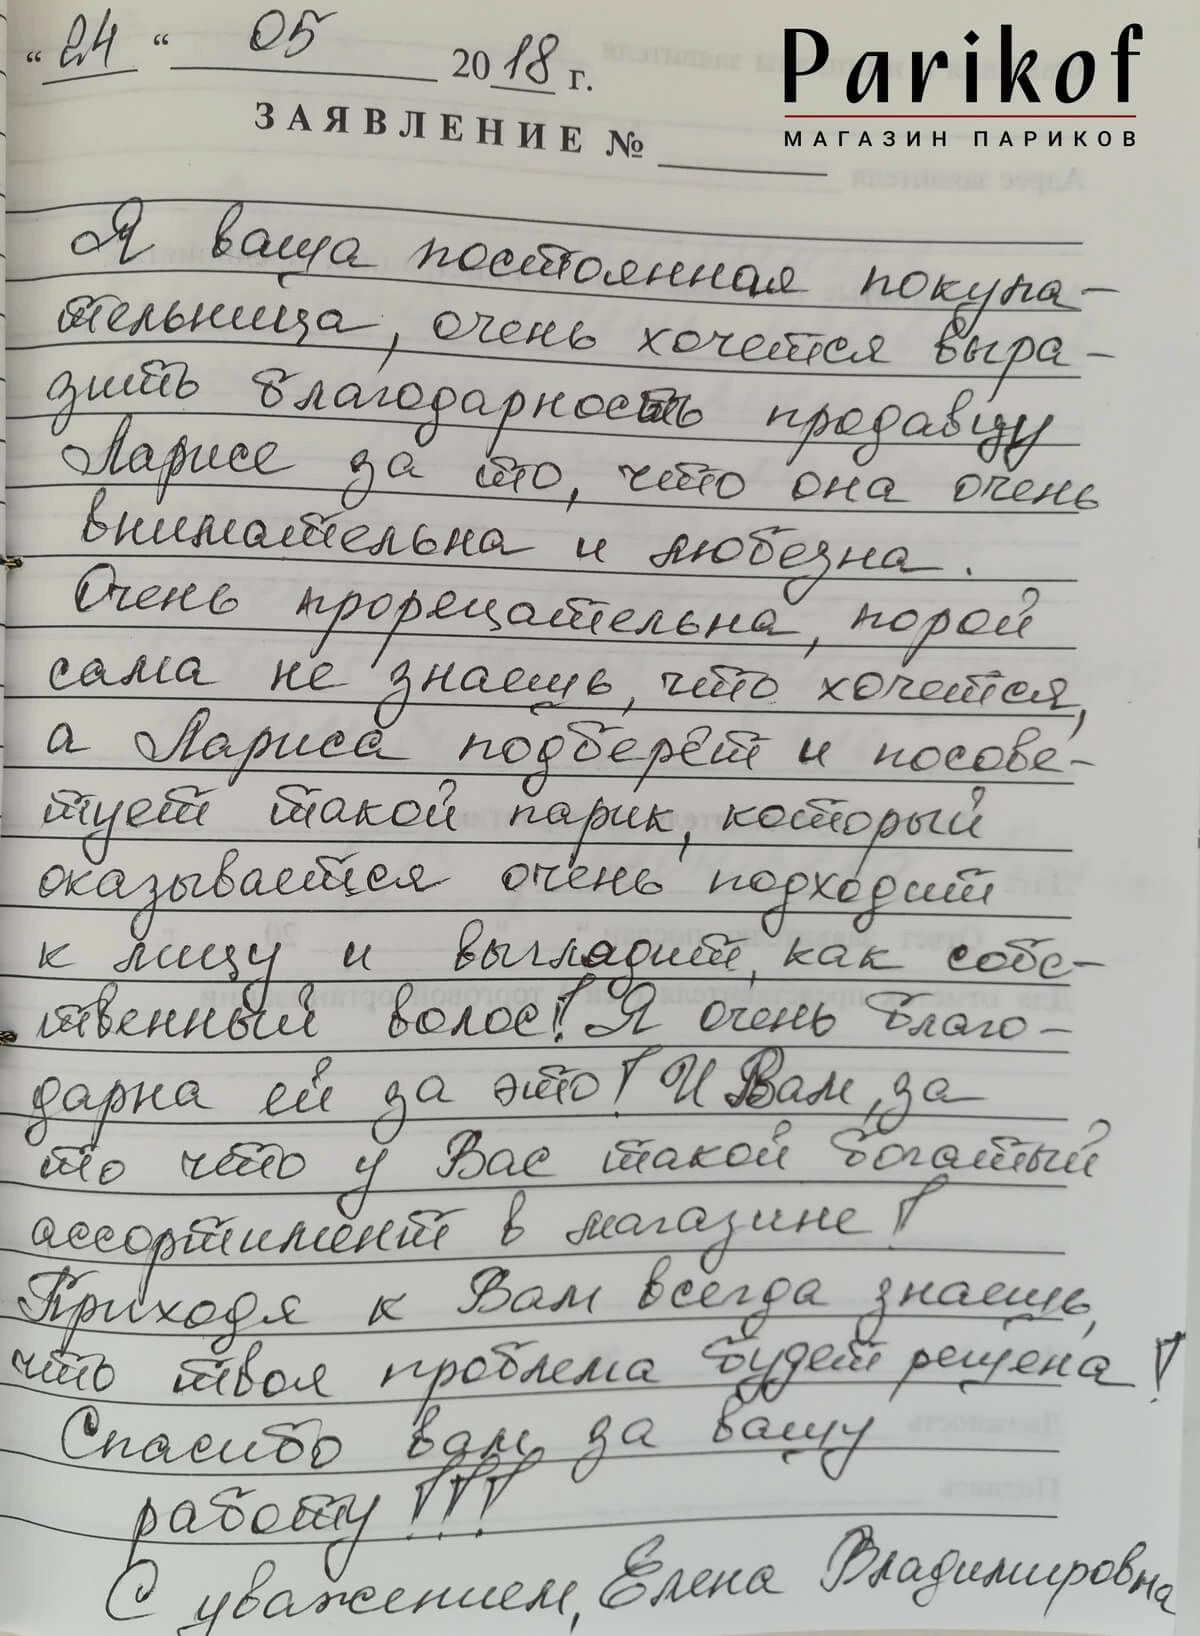 "24" 05 2018 г.
Parikof
МАГАЗИН ПАРИКОВ
ЗАЯВЛЕНИЕ №
Адрес заявителя
Я ваша постоянная покупа-
тельница, очень хочется выра-
зить благодарность продавцу
Ларисе за то, что она очень
внимательна и любезна.
Очень прорецательна, порой
сама не знаешь, что хочется,
а Лариса подберёт и посове-
тует такой парик, который
оказывается очень подходит
к лицу и выглядит, как собс-
твенный волос! Я очень благо-
дарна ей за это! И Вам, за
то что у Вас такой богатый
ассортимент в магазине!
Приходя к Вам всегда знаешь,
что твоя проблема будет решена!
Спасибо вам за вашу
работу!!!
С уважением, Елена Владимировна